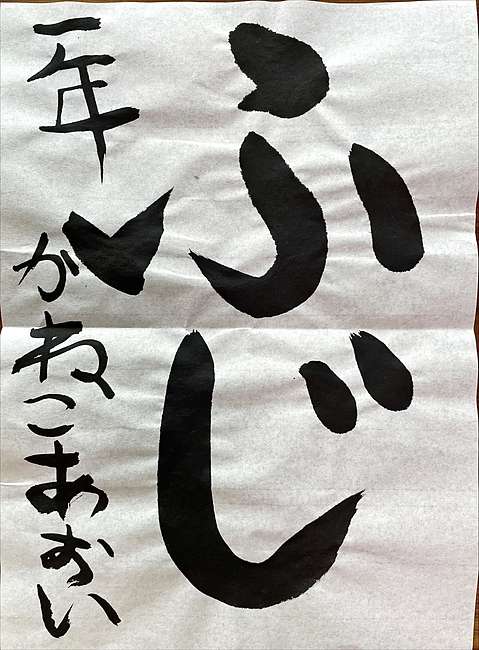 ふじ
一年 かねこあおい